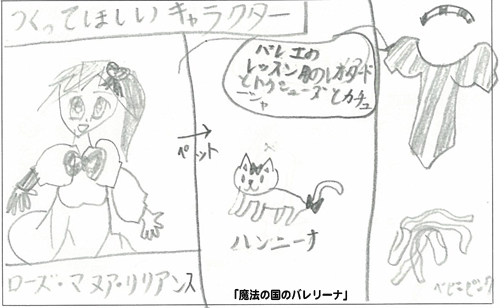 つくってほしいキャラクター
バレエの
レッスン用のレオタード
とトウシューズとカチュ
ーシャ
ペット
ハンニーナ
ローズ・マヌア・リリアンス
ベビーピンク
「魔法の国のバレリーナ」